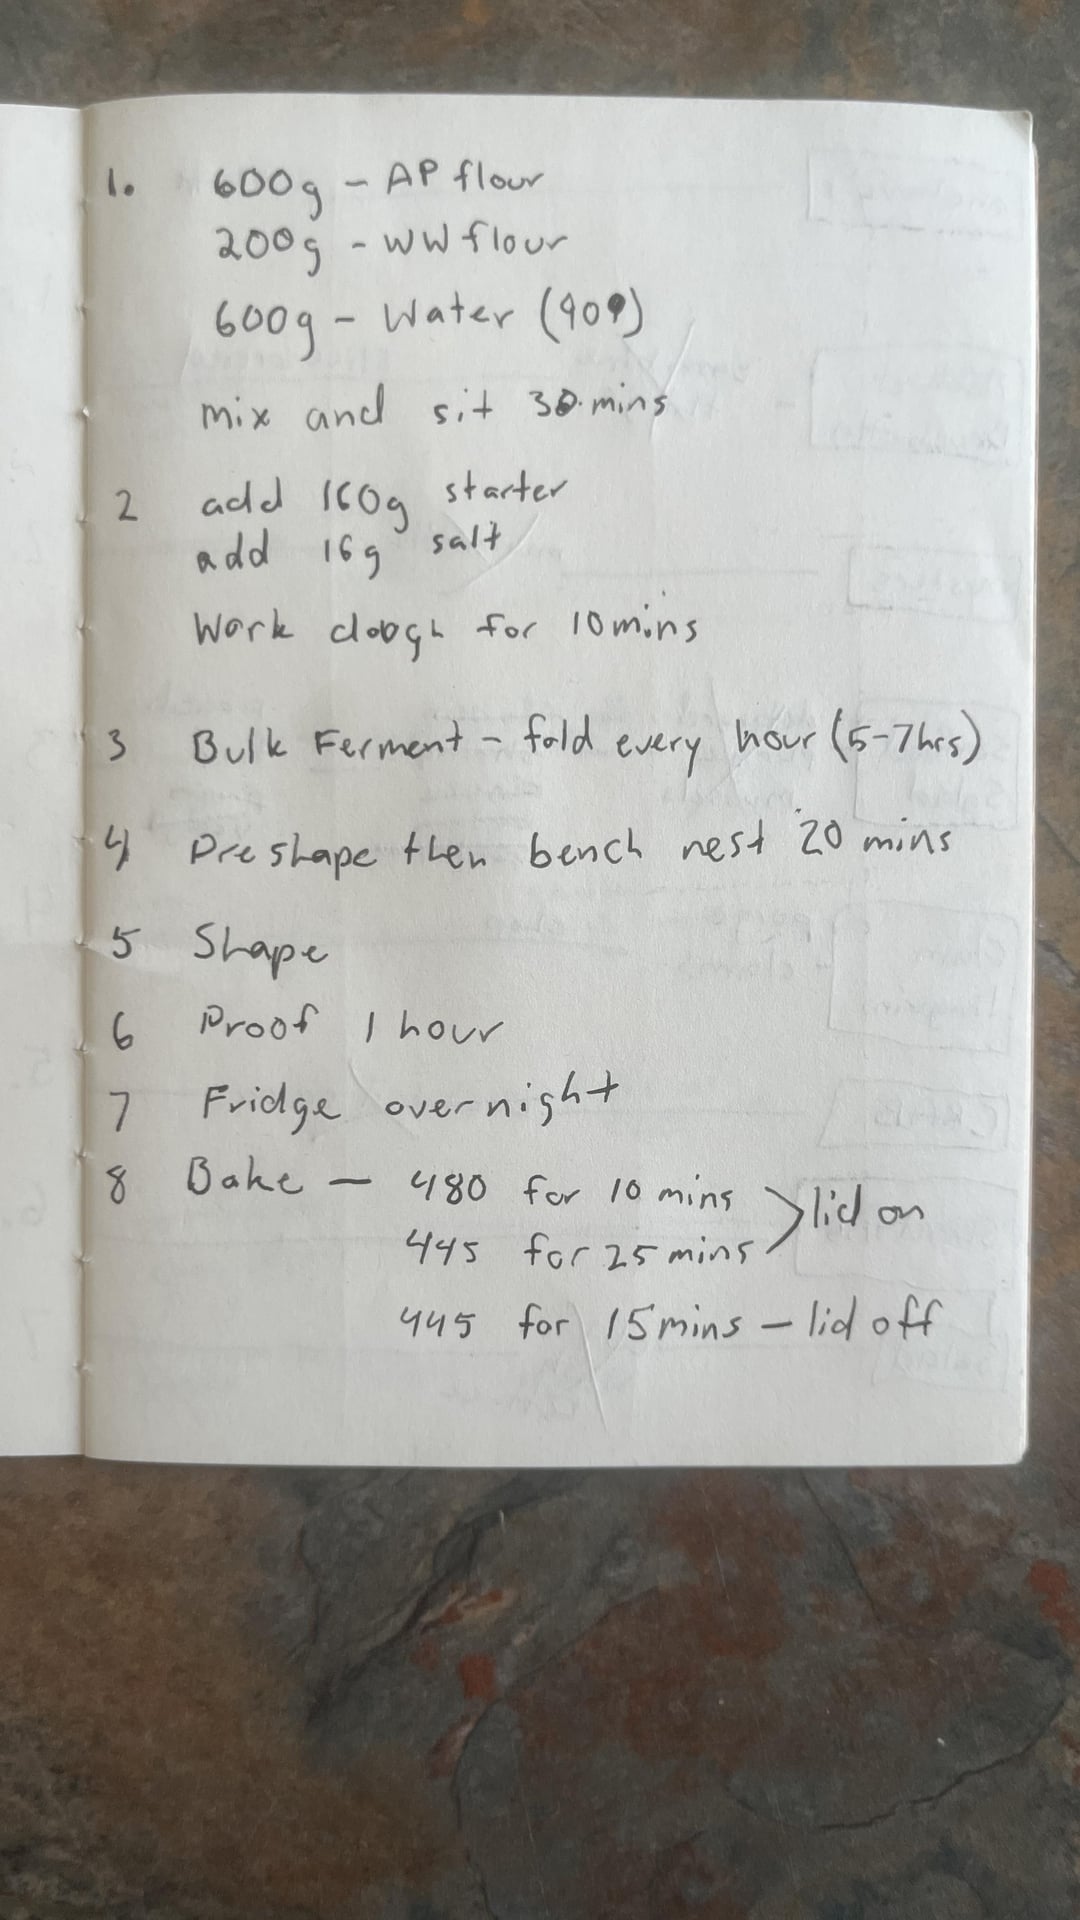 1. 600g - AP flour
200g - WW flour
600g - Water (90°)
mix and sit 30 mins
2 add 160g starter
add 16g salt
Work dough for 10 mins
3 Bulk Ferment - fold every hour (5-7hrs)
4 Preshape then bench rest 20 mins
5 Shape
6 Proof 1 hour
7 Fridge overnight
8 Bake - 480 for 10 mins
445 for 25 mins > lid on
445 for 15 mins - lid off